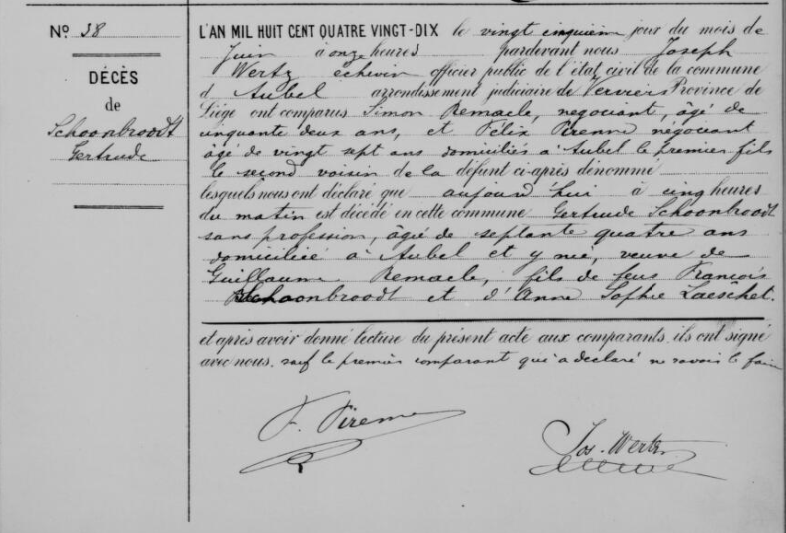 No 38
DÉCÈS
de
Schoonbroodt
Gertrude
L'AN MIL HUIT CENT QUATRE VINGT-DIX le vingt cinquièm jour du mois de
Juin à onze heures pardevant nous Joseph
Wertz échevin officier public de l'état civil de la commune
d Aubel arrondissement judiciaire de Verviers Province de
Liège ont comparus Simon Remacle, négociant, âgé de
cinquante deux ans, et Félix Pirenne négociant
âgé de vingt sept ans domiciliés à Aubel le premier fils
le second voisin de la défunt ci-après dénommé
lesquels nous ont déclaré que aujourd'hui à cinq heures
du matin est décédé en cette commune Gertrude Schoonbroodt
sans profession, âgée de septante quatre ans
domiciliée à Aubel et y née, veuve de
Guillaume Remacle, fils de feus François
Schoonbroodt et d'Anne Sophie Laeschet.
et après avoir donné lecture du présent acte aux comparants, ils ont signé
avec nous, sauf le premier comparant qui a déclaré ne savoir le faire
F. Pirenne
Jos. Wertz